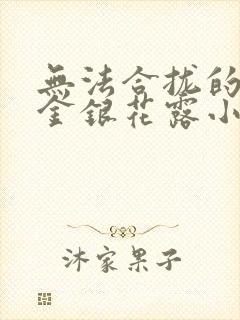 無法合拢的
金銀花露小
沐家果子